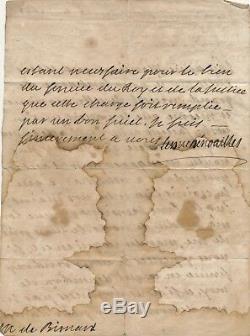 estant necessaire pour le bien
du service du Roy et de la Justice
que cette charge soit remplie
par un bon sujet. Je suis
sincerement a vous
M. de Bimard